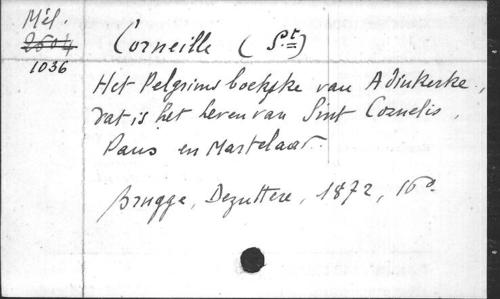 Mél.
2604
1036
Corneille (St)
Het Pelgrims boekske van Adinkerke,
dat is het leven van Sint Cornelis,
Paus en Martelaar.
Brugge, Dezuttere, 1872, 16o.